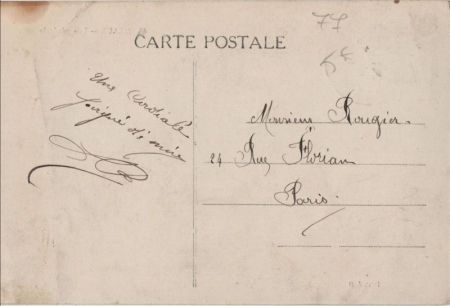 CARTE POSTALE
77
5f
Une Cordiale
poignée d'main
Monsieur Rougier
24 Rue Florian
Paris.